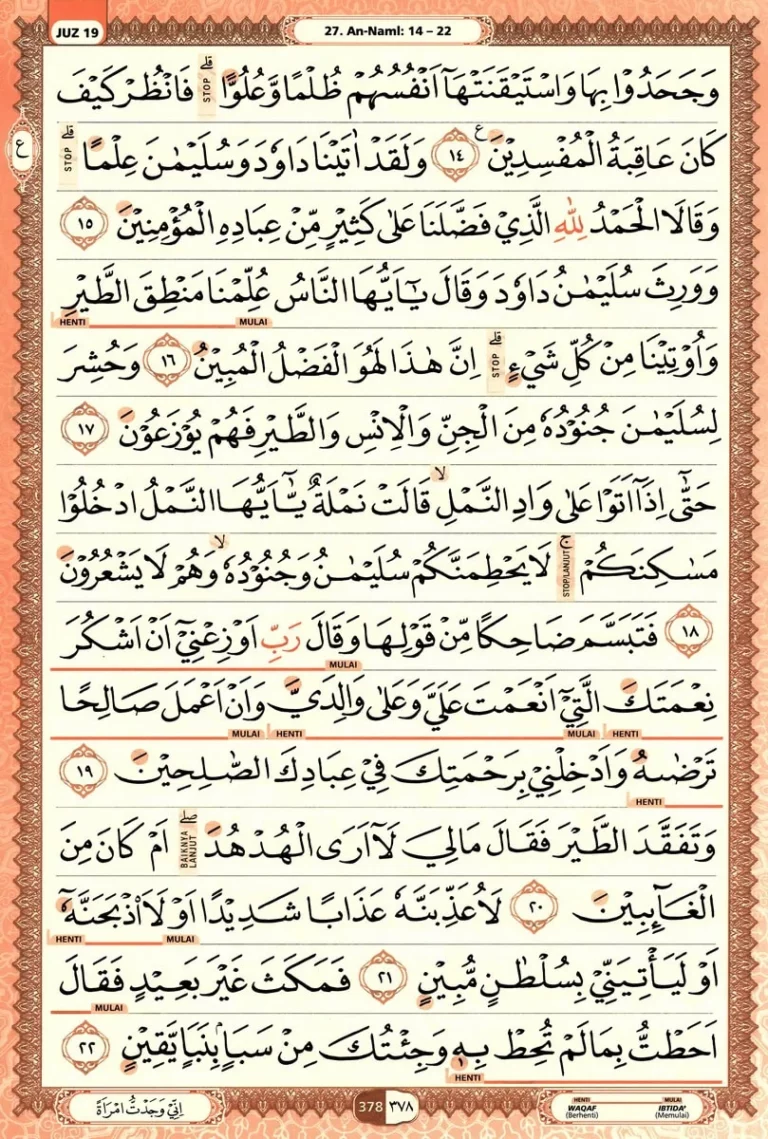 JUZ 19
27. An-Naml: 14 – 22
وَجَحَدُوْا بِهَا وَاسْتَيْقَنَتْهَآ اَنْفُسُهُمْ ظُلْمًا وَّعُلُوًّاۗ STOP فَانْظُرْ كَيْفَ
كَانَ عَاقِبَةُ الْمُفْسِدِيْنَ ࣖ ١٤ وَلَقَدْ اٰتَيْنَا دَاوٗدَ وَسُلَيْمٰنَ عِلْمًاۗ STOP
ع
وَقَالَا الْحَمْدُ لِلّٰهِ الَّذِيْ فَضَّلَنَا عَلٰى كَثِيْرٍ مِّنْ عِبَادِهِ الْمُؤْمِنِيْنَ ١٥
وَوَرِثَ سُلَيْمٰنُ دَاوٗدَ وَقَالَ يٰٓاَيُّهَا النَّاسُ عُلِّمْنَا مَنْطِقَ الطَّيْرِ
MULAI HENTI
وَاُوْتِيْنَا مِنْ كُلِّ شَيْءٍۗ STOP اِنَّ هٰذَا لَهُوَ الْفَضْلُ الْمُبِيْنُ ١٦ وَحُشِرَ
لِسُلَيْمٰنَ جُنُوْدُهٗ مِنَ الْجِنِّ وَالْاِنْسِ وَالطَّيْرِ فَهُمْ يُوْزَعُوْنَ ١٧
حَتّٰىٓ اِذَآ اَتَوْا عَلٰى وَادِ النَّمْلِۙ قَالَتْ نَمْلَةٌ يّٰٓاَيُّهَا النَّمْلُ ادْخُلُوْا
مَسٰكِنَكُمْۚ STOP/LANJUT لَا يَحْطِمَنَّكُمْ سُلَيْمٰنُ وَجُنُوْدُهٗۙ وَهُمْ لَا يَشْعُرُوْنَ
١٨ فَتَبَسَّمَ ضَاحِكًا مِّنْ قَوْلِهَا وَقَالَ رَبِّ اَوْزِعْنِيْٓ اَنْ اَشْكُرَ
MULAI
نِعْمَتَكَ الَّتِيْٓ اَنْعَمْتَ عَلَيَّ وَعَلٰى وَالِدَيَّ وَاَنْ اَعْمَلَ صَالِحًا
HENTI MULAI HENTI MULAI
تَرْضٰىهُ وَاَدْخِلْنِيْ بِرَحْمَتِكَ فِيْ عِبَادِكَ الصّٰلِحِيْنَ ١٩
HENTI
وَتَفَقَّدَ الطَّيْرَ فَقَالَ مَا لِيَ لَآ اَرَى الْهُدْهُدَۖ BAIKNYA LANJUT اَمْ كَانَ مِنَ
الْغَاۤىِٕبِيْنَ ٢٠ لَاُعَذِّبَنَّهٗ عَذَابًا شَدِيْدًا اَوْ لَاَا۟ذْبَحَنَّهٗٓ
MULAI HENTI
اَوْ لَيَأْتِيَنِّيْ بِسُلْطٰنٍ مُّبِيْنٍ ٢١ فَمَكَثَ غَيْرَ بَعِيْدٍ فَقَالَ
MULAI
اَحَطْتُّ بِمَا لَمْ تُحِطْ بِهٖ وَجِئْتُكَ مِنْ سَبَاٍۢ بِنَبَاٍ يَّقِيْنٍ ٢٢
HENTI
اِنِّيْ وَجَدْتُّ امْرَاَةً
378 ٣٧٨
HENTI MULAI
WAQAF IBTIDA'
(Berhenti) (Memulai)